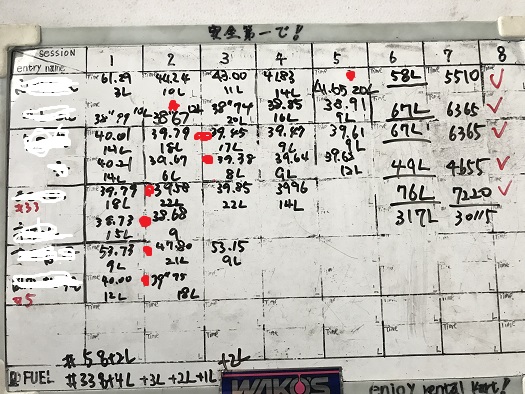 安全第一で!
session
entry name
1 2 3 4 5 6 7 8
61.29 44.24 43.00 41.83 58L 5510
3L 10L 11L 14L 41.65 20L
38"99 10L 38"67 38"74 38.85 38.91 67L 6365
20L 16L 9L
40.01 39.79 39.45 39.47 39.61 67L 6365
14L 18L 17L 9L 9L
40.21 39.67 39.38 39.64 49L 4655
14L 6L 8L 9L 12L
39.79 39.58 39.85 39.76 76L 7220
#33 18L 22L 22L 14L
38.73 38.68 317L 30115
15L 9
53.73 47.80 53.15
9L 21L 9L
40.00 39"75
#5 12L 18L
#5 8+2L +2L
FUEL #33 8+4L +3L +2L +1L
WAKO'S
enjoy rental kart!